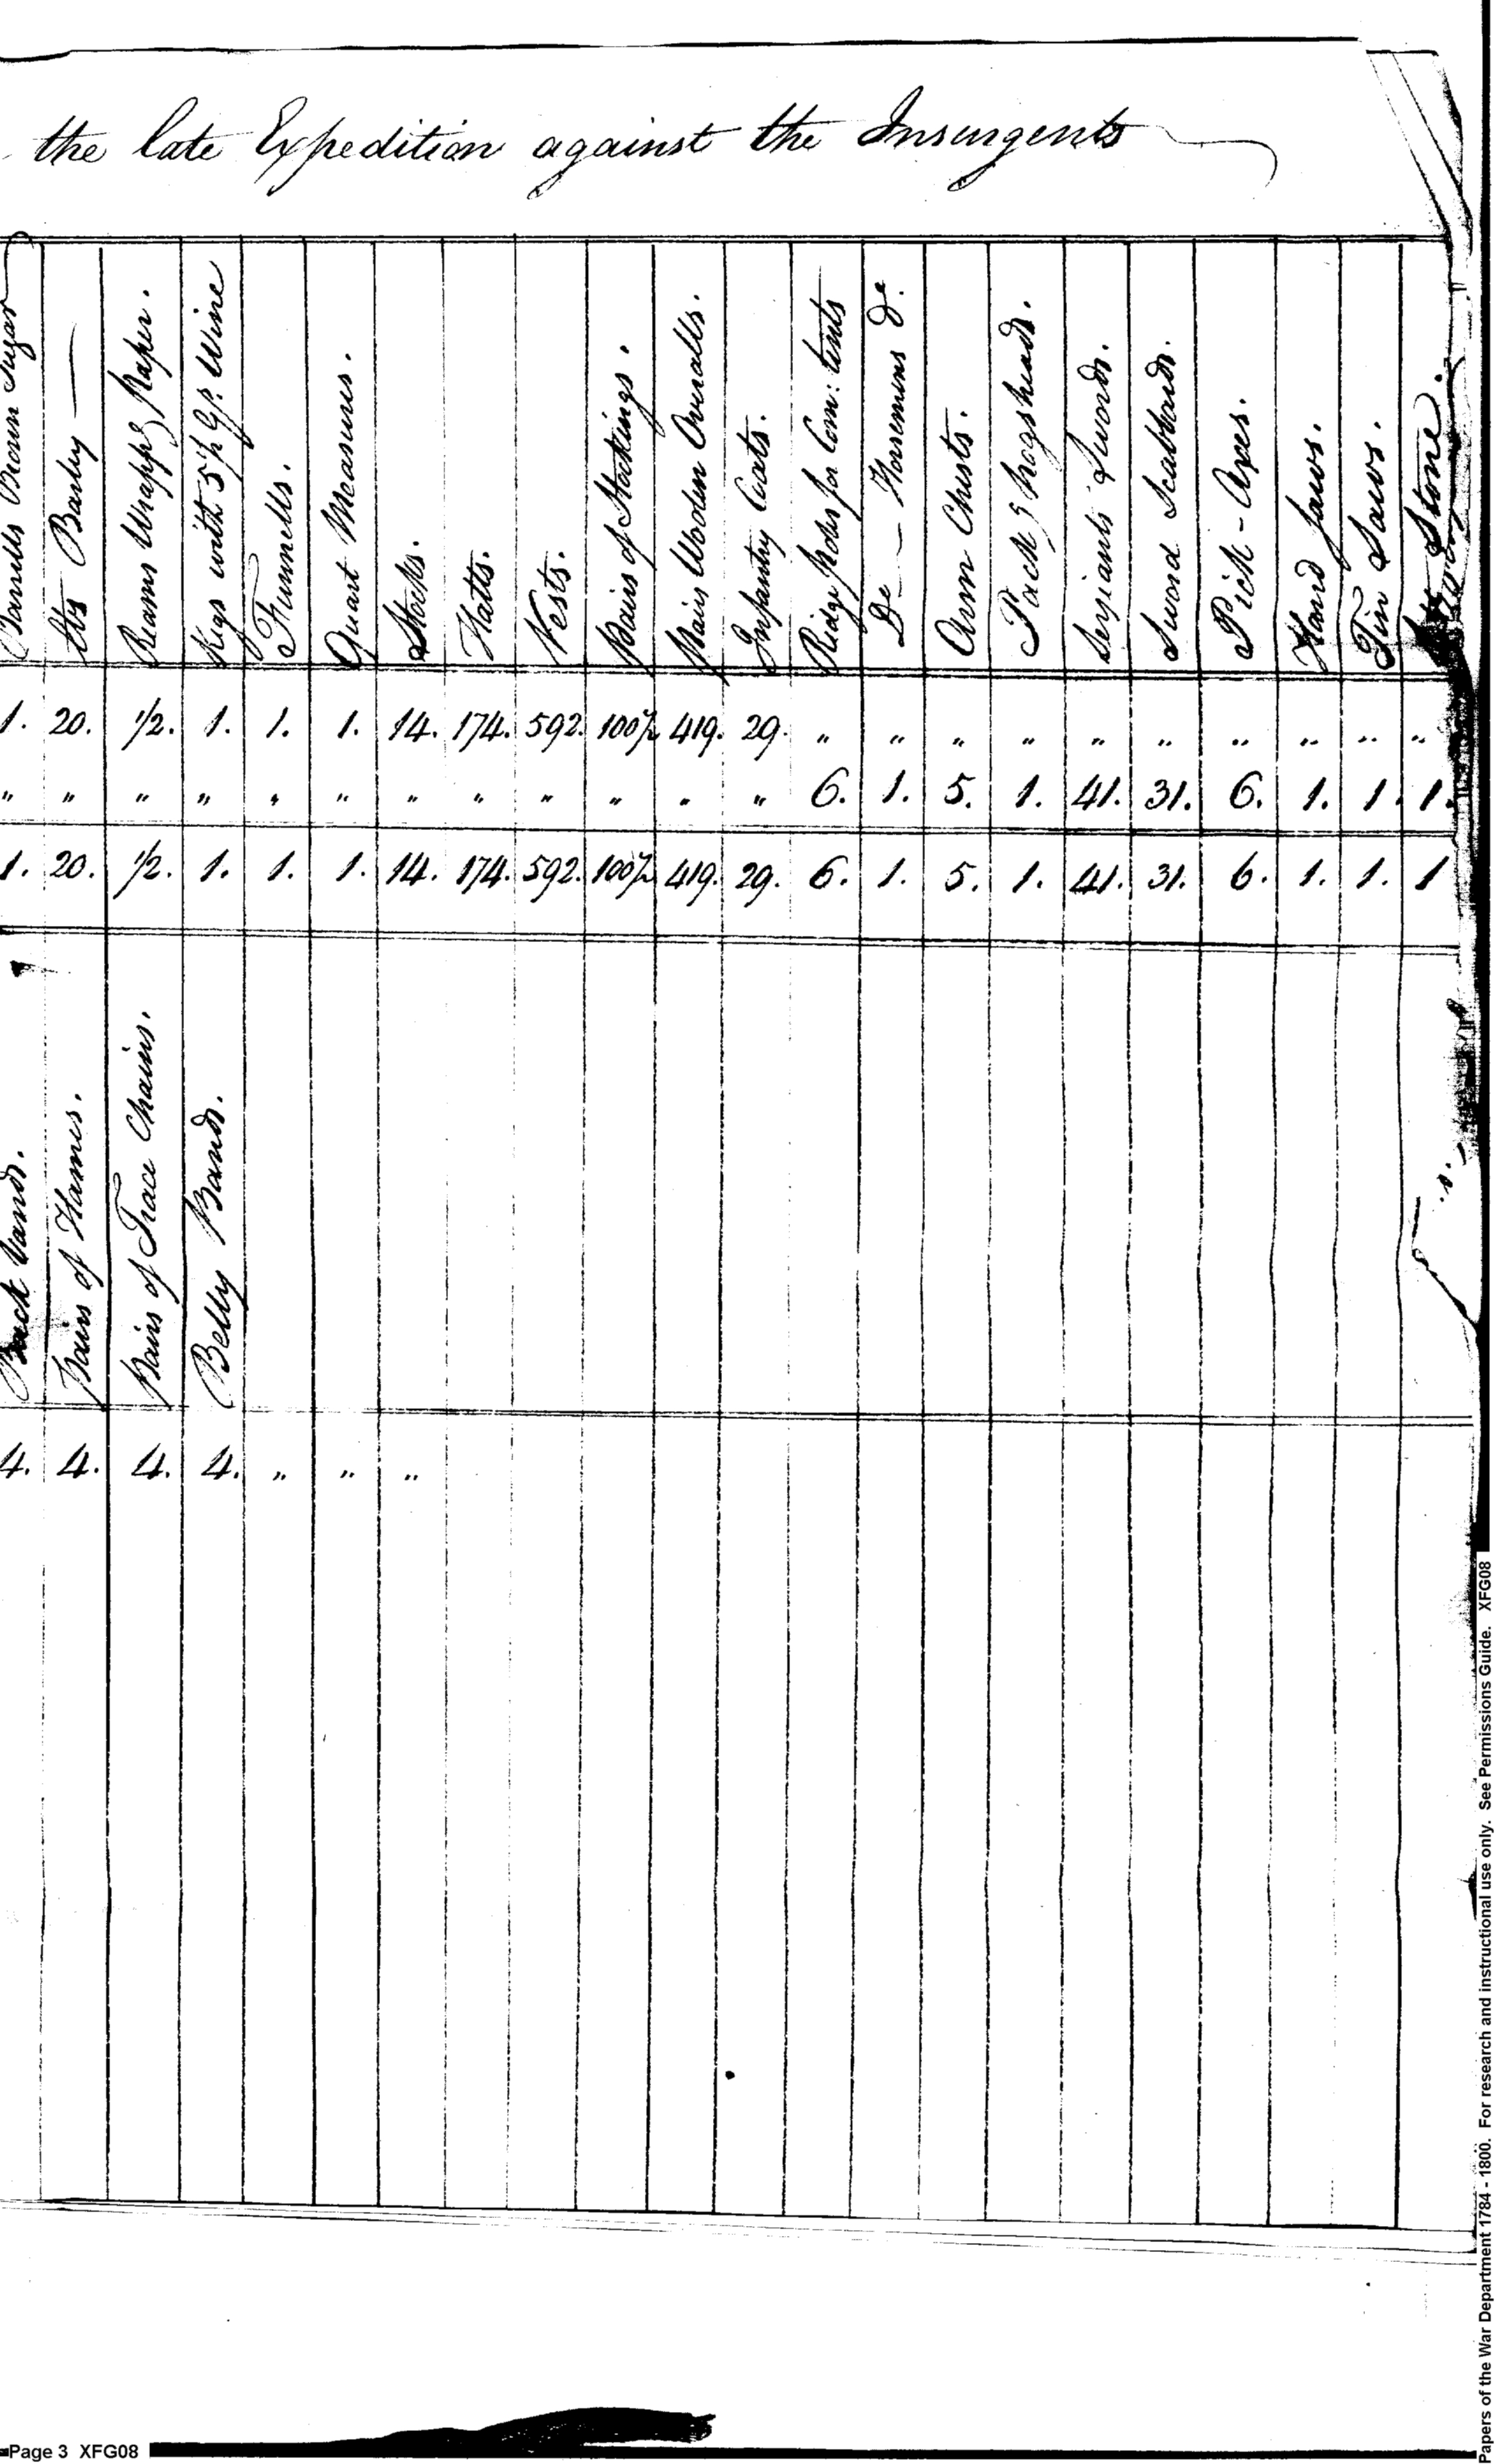 the late Expedition against the Insurgents
Barrells Brown Sugar
lbs Barley —
Reams Wrappg paper.
Kegs with 5½ Gs. Wine
Funnells.
Quart Measures.
Stocks.
Hatts.
Vests.
Pairs of Stockings.
Pairs Woolen Overalls.
Infantry Coats.
Ridge poles for Com: tents
Do — Horsemens do.
Arm Chests.
Pack g hogsheads.
Serjeants Swords.
Sword Scabbards.
Pick-Axes.
Hand Saws.
Tin Saws.
Stone.
1. 20. 1/2. 1. 1. 1. 14. 174. 592. 100½ 419. 29. " " " " " " " " " "
" " " " " " " " " " " " 6. 1. 5. 1. 41. 31. 6. 1. 1. 1.
1. 20. 1/2. 1. 1. 1. 14. 174. 592. 100½ 419. 29. 6. 1. 5. 1. 41. 31. 6. 1. 1. 1
Back bands.
Pairs of Hames.
Pairs of Trace Chains.
Belly Bands.
4. 4. 4. 4. " " "
Page 3 XFG08
Papers of the War Department 1784 - 1800. For research and instructional use only. See Permissions Guide. XFG08